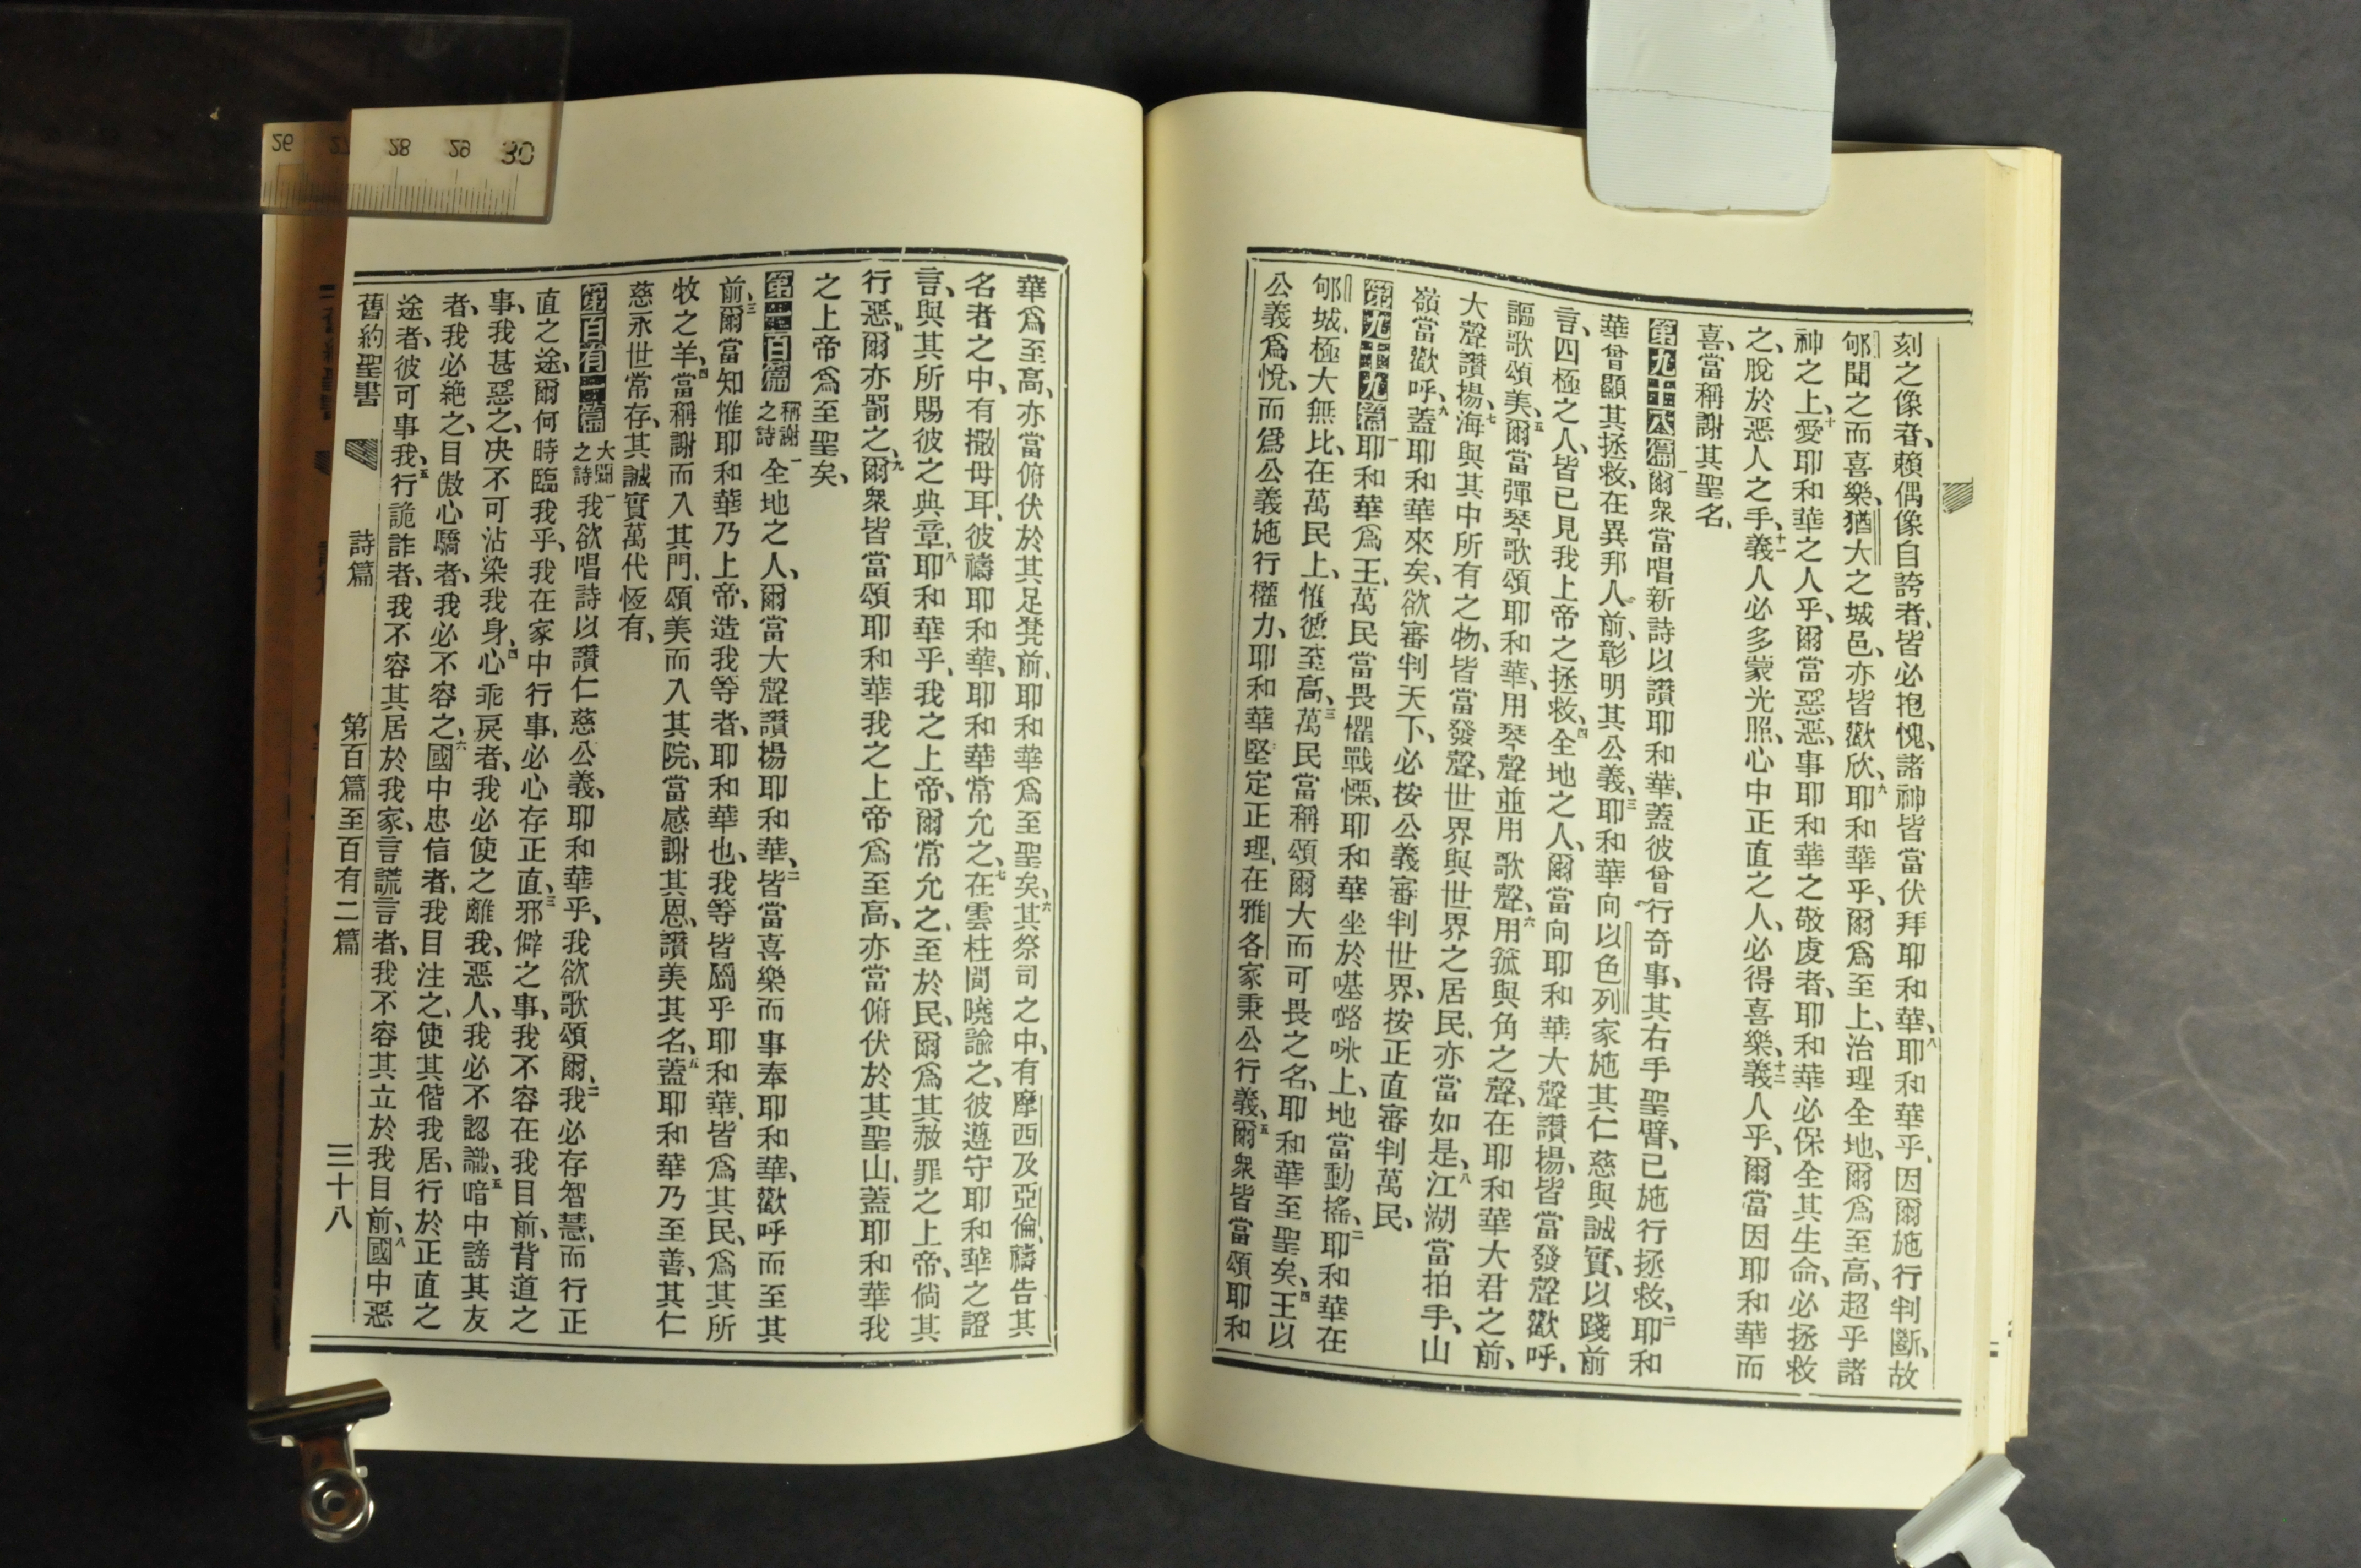 刻之像者、賴偶像自誇者、皆必抱愧、諸神皆當伏拜耶和華、八耶和華乎、因爾施行判斷、故
郇聞之而喜樂、猶大之城邑、亦皆歡欣、九耶和華乎、爾爲至上、治理全地、爾爲至高、超乎諸
神之上、十愛耶和華之人乎、爾當惡惡、事耶和華之敬虔者、耶和華必保全其生命、必拯救
之、脫於惡人之手、十一義人必多蒙光照、心中正直之人、必得喜樂、十二義人乎、爾當因耶和華而
喜、當稱謝其聖名、
第九十八篇一爾衆當唱新詩以讚耶和華、蓋彼曾行奇事、其右手聖臂、已施行拯救、二耶和
華曾顯其拯救、在異邦人前、彰明其公義、三耶和華向以色列家施其仁慈與誠實、以踐前
言、四極之人、皆已見我上帝之拯救、四全地之人、爾當向耶和華大聲讚揚、皆當發聲歡呼、
謳歌頌美、五爾當彈琴歌頌耶和華、用琴聲並用歌聲、六用箛與角之聲、在耶和華大君之前、
大聲讚揚、七海與其中所有之物、皆當發聲、世界與世界之居民、亦當如是、八江湖當拍手、山
嶺當歡呼、九蓋耶和華來矣、欲審判天下、必按公義審判世界、按正直審判萬民、
第九十九篇一耶和華爲王、萬民當畏懼戰慄、耶和華坐於𠼻𡀔咪上、地當動搖、二耶和華在
郇城、極大無比、在萬民上、惟彼至高、三萬民當稱頌爾大而可畏之名、耶和華至聖矣、四王以
公義爲悅、而爲公義施行權力、耶和華堅定正理、在雅各家秉公行義、五爾衆皆當頌耶和
華爲至高、亦當俯伏於其足凳前、耶和華爲至聖矣、六其祭司之中、有摩西及亞倫、禱告其
名者之中、有撒母耳、彼禱耶和華、耶和華常允之、七在雲柱間曉諭之、彼遵守耶和華之證
言、與其所賜彼之典章、八耶和華乎、我之上帝、爾常允之、至於民、爾爲其赦罪之上帝、倘其
行惡、爾亦罰之、九爾衆皆當頌耶和華我之上帝爲至高、亦當俯伏於其聖山、蓋耶和華我
之上帝爲至聖矣、
第一百篇 稱謝之詩 一全地之人、爾當大聲讚揚耶和華、二皆當喜樂而事奉耶和華、歡呼而至其
前、三爾當知惟耶和華乃上帝、造我等者、耶和華也、我等皆屬乎耶和華、皆爲其民、爲其所
牧之羊、四當稱謝而入其門、頌美而入其院、當感謝其恩、讚美其名、五蓋耶和華乃至善、其仁
慈永世常存、其誠實萬代恆有、
第百有一篇 大闢之詩 一我欲唱詩以讚仁慈公義、耶和華乎、我欲歌頌爾、二我必存智慧、而行正
直之途、爾何時臨我乎、我在家中行事、必心存正直、三邪僻之事、我不容在我目前、背道之
事、我甚惡之、决不可沾染我身、四心乖戾者、我必使之離我、惡人、我必不認識、五暗中謗其友
者、我必絕之、目傲心驕者、我必不容之、六國中忠信者、我目注之、使其偕我居、行於正直之
途者、彼可事我、五行詭詐者、我不容其居於我家、言謊言者、我不容其立於我目前、八國中惡
舊約聖書 詩篇 第百篇至百有二篇 三十八
26 27 28 29 30